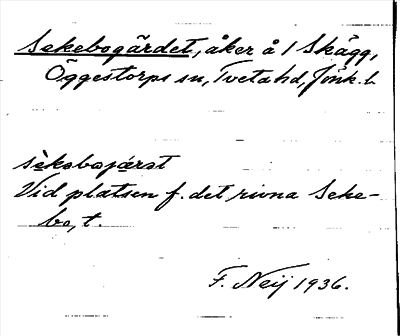 Sekebogärdet, åker å 1 Skägg,
Öggestorps sn, Tveta hd, Jönk. l.
sèkobojä́rət
Vid platsen f. det rivna Seke-
bo, t.
F. Neij 1936.